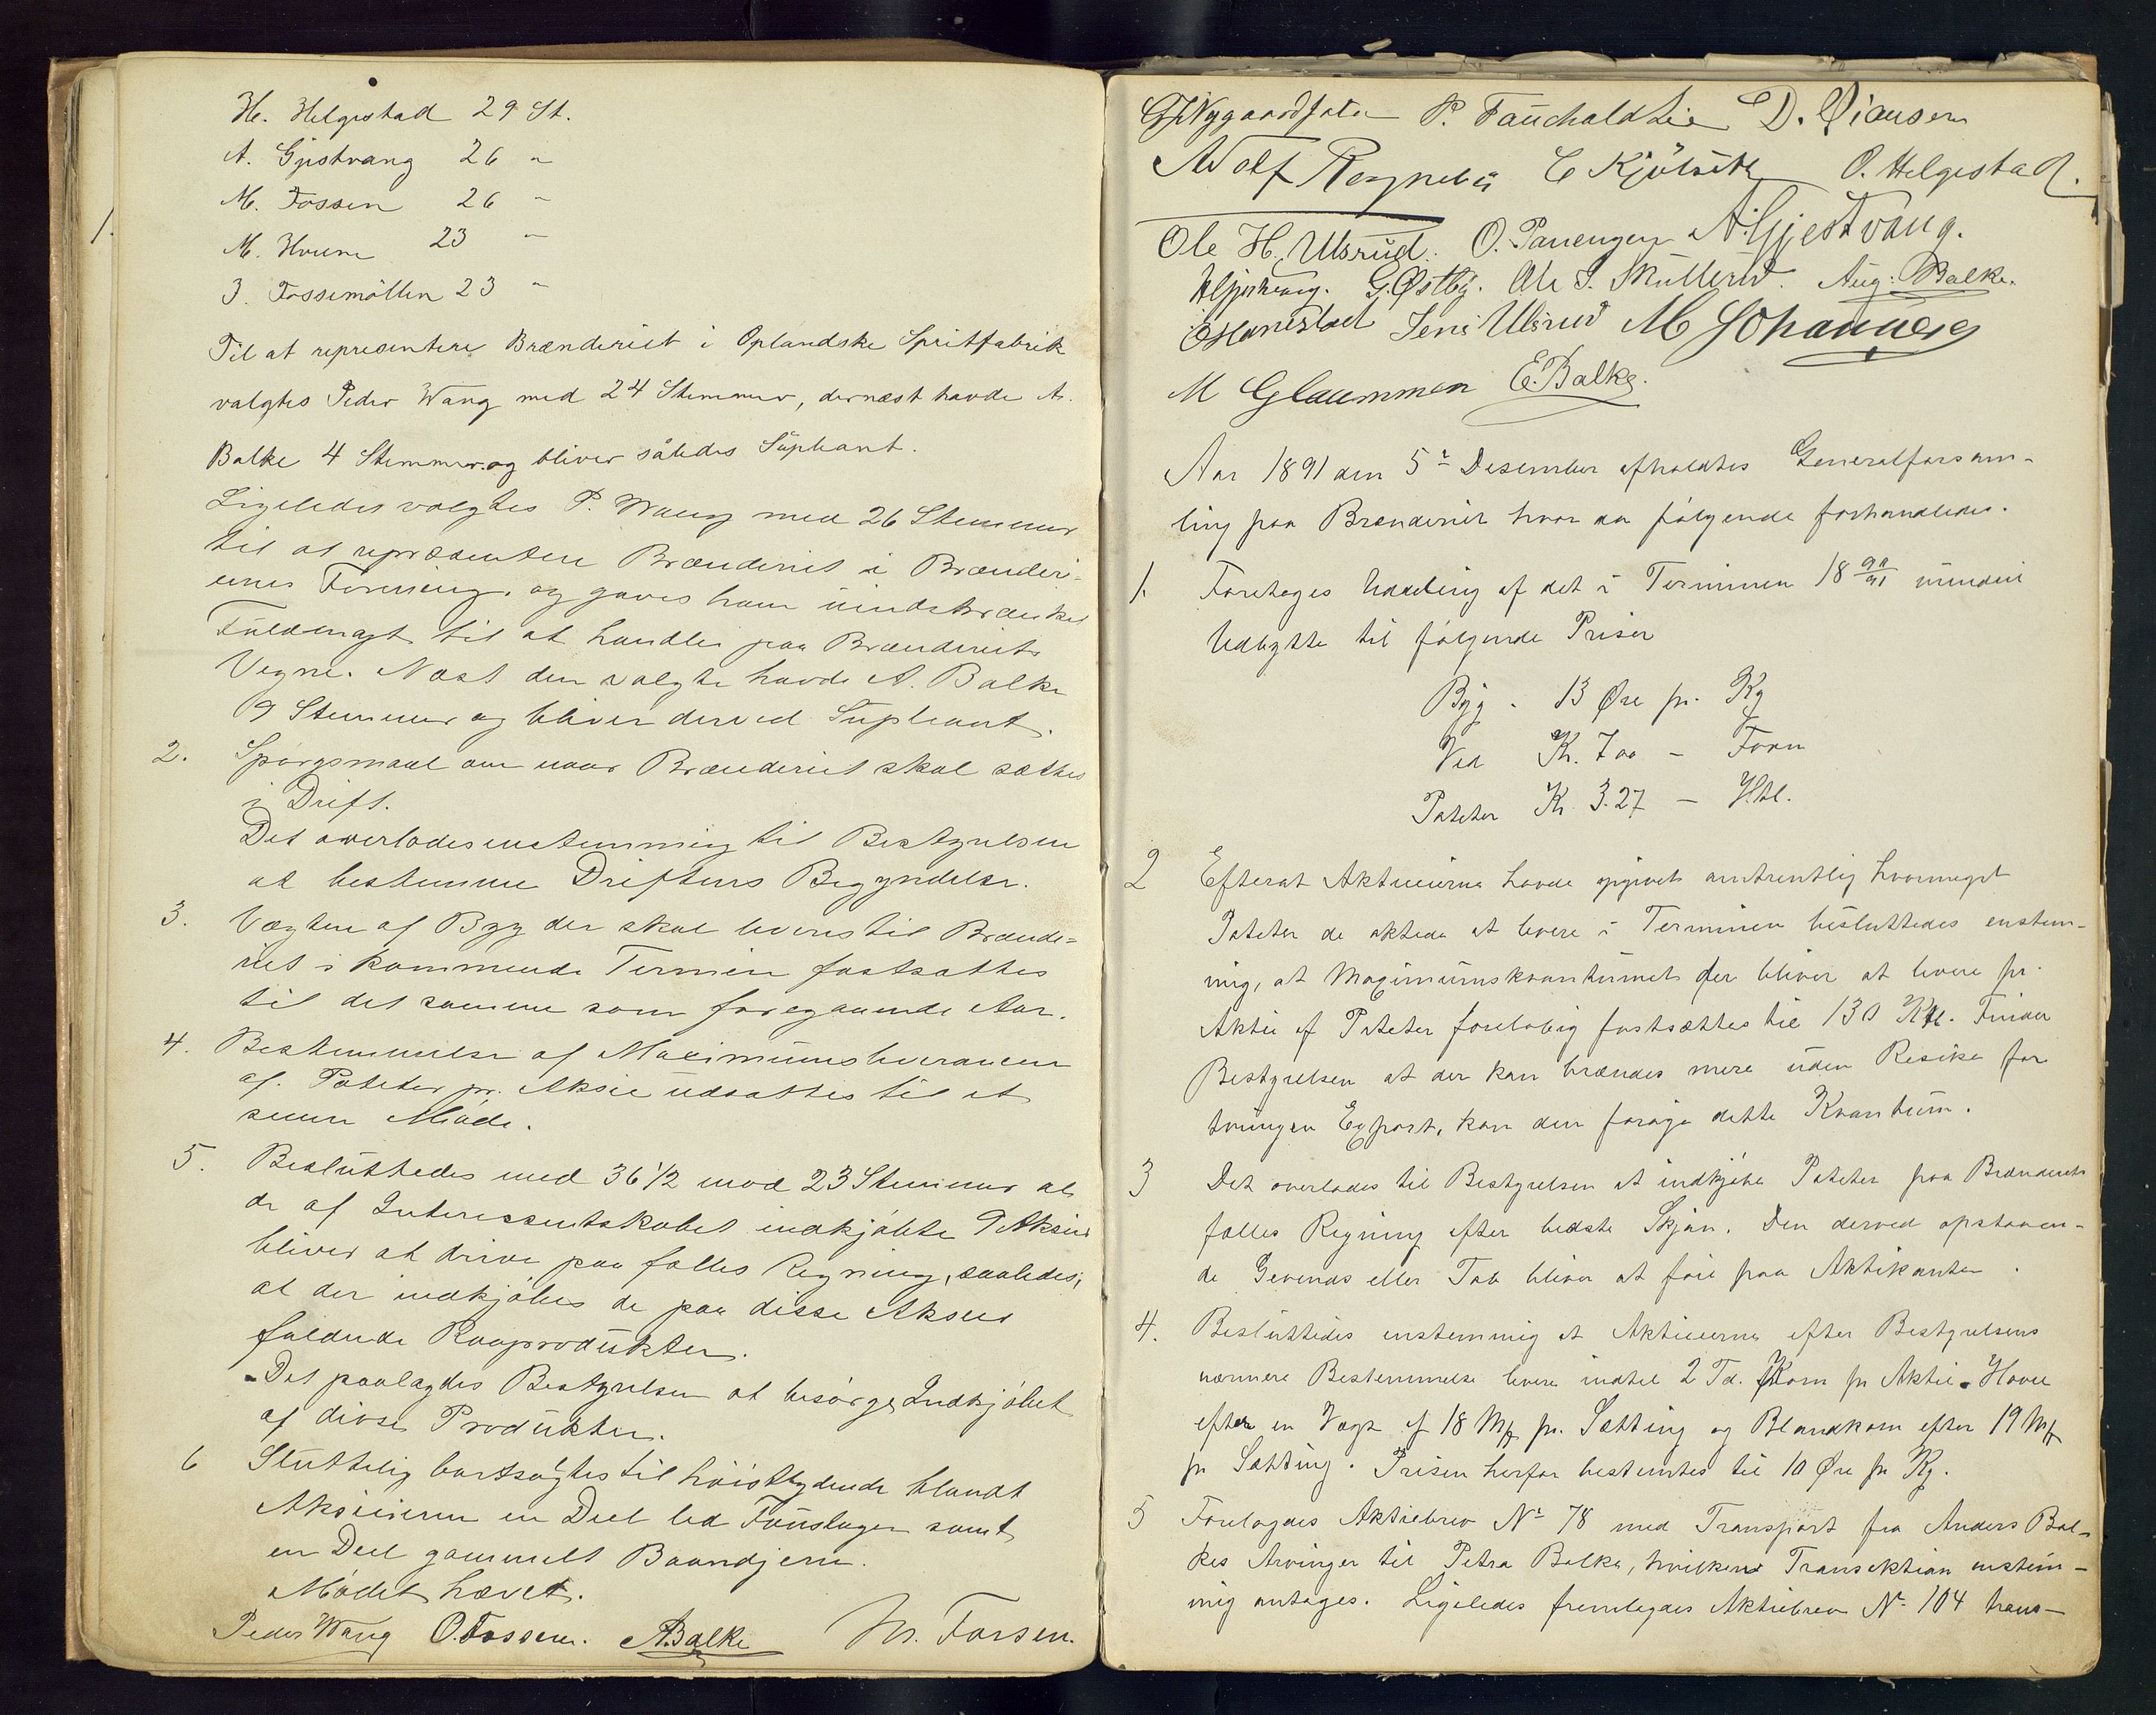 H. Helgestad 29 St.
A. Gjestvang 26 "
M. Fossen 26 "
M. Hveem 23 "
J. Fossemöllen 23 "
1.
Til at representere Brænderiet i Oplandske Spritfabrik
valgtes Peder Wang med 24 Stemmer, dernæst havde A.
Balke 4 Stemmer og bliver således Supleant.
Ligeledes valgtes P. Wang med 26 Stemmer
til at repræsentere Brænderiet i Brænderi-
ernes Forening, og gaves ham uindskrænket
Fuldmagt til at handle paa Brænderiets
Vegne. Næst den valgte havde A. Balke
9 Stemmer og bliver derved Supleant.
2. Spørgsmaal om naar Brænderiet skal sættes
i Drift.
Det overlodes enstemmig til Bestyrelsen
at bestemme Driftens Begyndelse.
3. Vægten af Byg der skal leveres til Brænde=
riet i kommende Termin fastsattes
til det samme som foregaaende Aar.
4. Bestemmelse af Maximumsleverancen
af Poteter pr. Aksie udsattes til et
senere Møde.
5. Besluttedes med 36 1/2 mod 23 Stemmer at
de af Interessentskabet indkjøbte 9 Aksier
bliver at drive paa fælles Regning, saaledes,
at der indkjøbes de paa disse Aksier
faldende Raaprodukter.
Det paalagdes Bestyrelsen at besørge Indkjøbet
af disse Produkter.
6 Sluttelig bortsolgtes til høistbydende blandt
Aksieierne en Deel led Foustager samt
en Deel gammelt Baandjern.
Mødet hævet.
Peder Wang O. Fossen. A. Balke M. Fossen.
G. Nygaard P. Fauchald Lie D. Clausen
Adolf C Kjølseth O. Helgestad.
Ole H. Ulsrud. O. Panengen A. Gjestvang.
H Gjestvang. G. Østby. Ole S. Møllerud. Aug. Balke.
Jens Ulsrud M Johannes
M Glaummen E. Balke.
Aar 1891 den 5te Desember afholdtes Generalforsam-
ling paa Brænderiet hvor da følgende forhandledes.
1. Foretoges Uddeling af det i Terminen 18 90/91 vundne
Udbytte til følgende Priser
Byg . 13 Øre pr. Kg
Ved Kr. 7 00 – Favn
Poteter Kr. 3.27 – Hbl.
2 Efterat Aktieeierne havde opgivet omtrentlig hvormeget
Poteter de aktede at levere i Terminen besluttedes enstem-
mig, at Maximumskvantumet der bliver at levere pr.
Aktie af Poteter foreløbig fastsættes til 130 Hl. Finder
Bestyrelsen at der kan brændes mere uden Resiko for
tvungen Export, kan den forøge dette Kvantum.
3 Det overlades til Bestyrelsen at indkjøbe Poteter paa Brænderiets
fælles Regning efter bedste Skjøn. Den derved opstaaen-
de Gevinds eller Tab bliver at føre paa Aktikonten.
4. Besluttedes enstemmig at Aktieeierne efter Bestyrelsens
nærmere Bestemmelse levere indtil 2 Td. Korn pr Aktie. Havre
efter en Vægt af 18 Mk pr. Sætting og Blandkorn efter 19 Mk
pr Sætting. Prisen herfor bestemtes til 10 Øre pr Kg.
5 Forelagdes Aktiebrev No 78 med Transport fra Anders Bal-
kes Arvinger til Petra Balke, hvilken Transaktion enstem-
mig antoges. Ligeledes fremlagdes Aktiebrev No 104 trans-